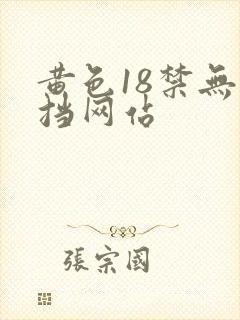 黄色18禁無
挡网佔
張宗國